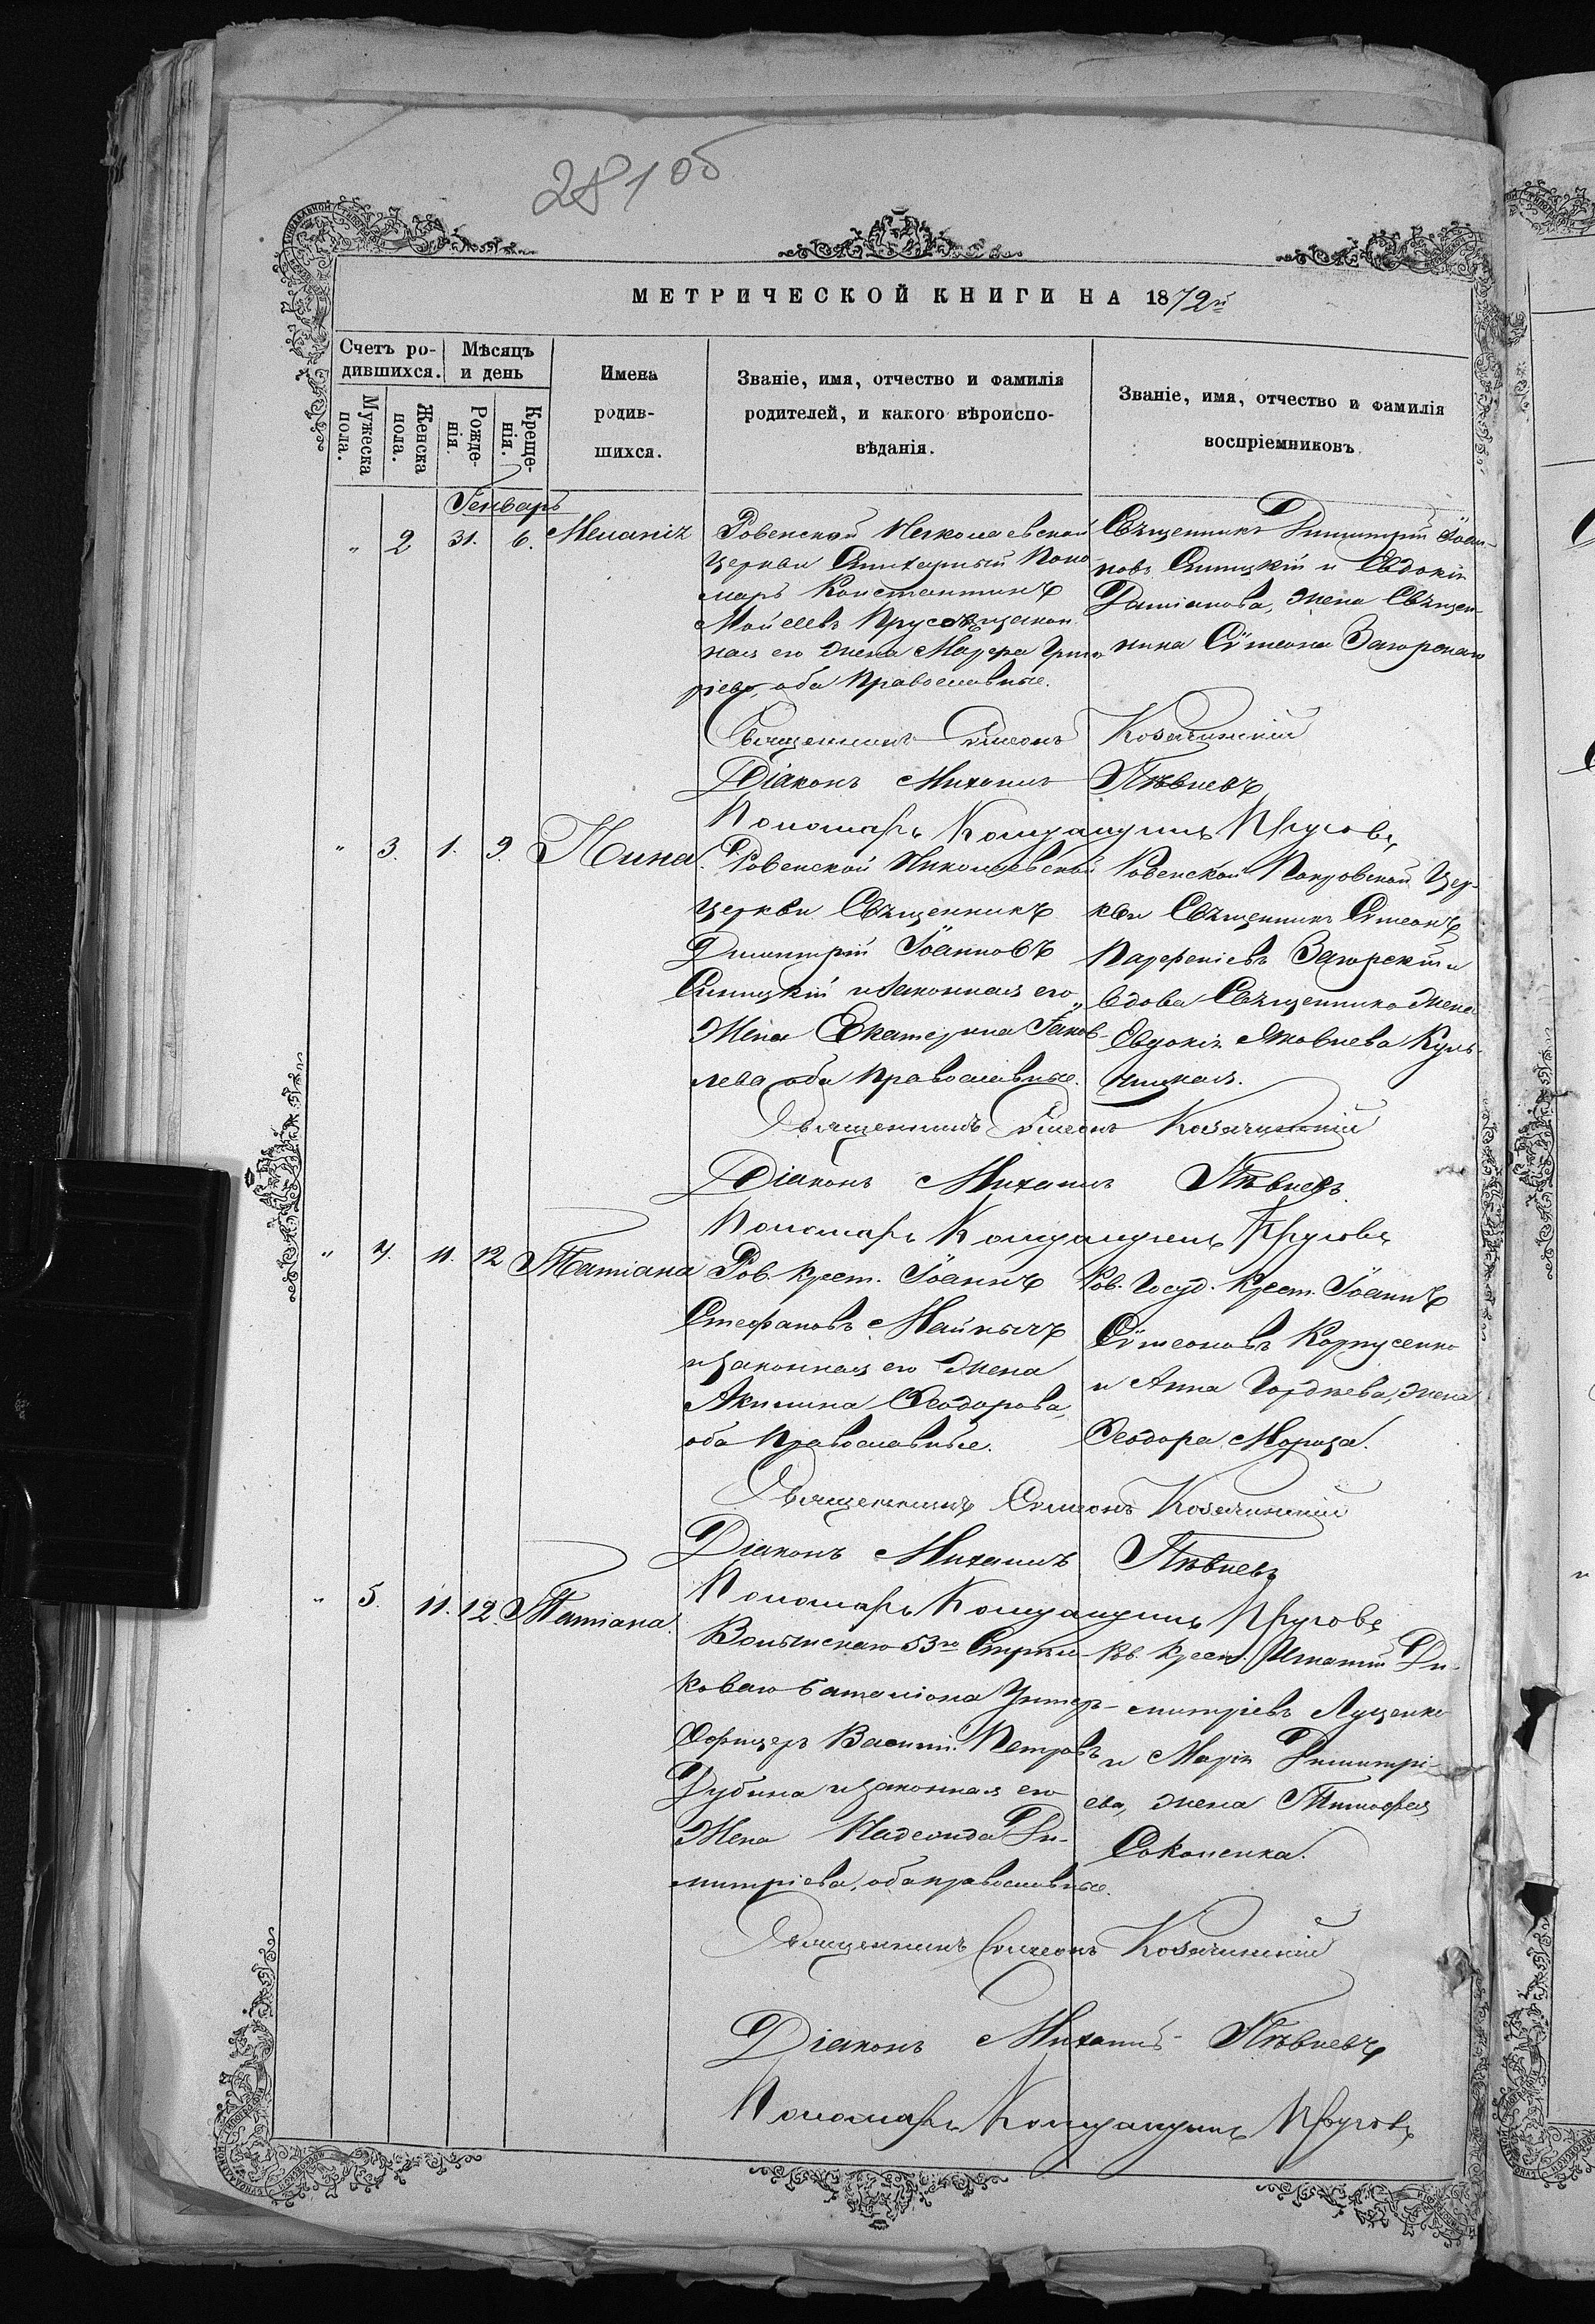 281 об
МЕТРИЧЕСКОЙ КНИГИ НА 1872й
Счетъ ро-
дившихся.
Мѣсяцъ
и день
Мужеска
пола.
Женска
пола.
Рожде-
нія.
Креще-
нія.
Имена
родив-
шихся.
Званіе, имя, отчество и фамилія
родителей, и какого вѣроиспо-
вѣданія.
Званіе, имя, отчество и фамилія
воспріемниковъ.
Генварь
" 2 31. 6. Меланія
Ровенской Николаевской
церкви Поно-
марь Константинъ
Мойсеевъ Прусовъ и закон-
ная его жена Марфа Григо-
ріева, оба Православные.
Священникъ Димитрій Іоан-
новъ Синицкій и Евдокія
Даміанова, жена Священ-
ника Сѵмеона Загорскаго
Священникъ Сѵмеонъ Козачинскій
Діаконъ Михаилъ Пѣвневъ
Пономарь Константинъ Прусовъ
" 3. 1. 9. Нина.
Ровенской Николаевской
церкви Священникъ
Димитрій Іоанновъ
Синицкій и законная его
жена Екатерина Іаков-
лева, оба Православные.
Ровенской Покровской Цер-
кви Священникъ Сѵмеонъ
Парфеніевъ Загорскій и
вдова Священнико жена
Евдокія Яковлева
Священникъ Сѵмеонъ Козачинскій
Діаконъ Михаилъ Пѣвневъ.
Пономарь Константинъ Прусовъ
" 4. 11. 12 Татіана
Ров. крест. Іоаннъ
Стефановъ
и законная его жена
Акилина Ѳеодорова,
оба Православные.
Ров. Госуд. Крест. Іоаннъ
Сѵмеоновъ Корнусенко
и Анна Гордѣева, жена
Ѳеодора Мороза.
Священникъ Сѵмеонъ Козачинскій
Діаконъ Михаилъ Пѣвневъ
Пономарь Константинъ Прусовъ
" 5. 11. 12. Татіана.
Волынскаго 53го Стрѣл-
коваго баталіона Унтеръ-
Офицеръ Василій Петровъ
Дубина и законная его
жена Надежда Ди-
митріева, оба православные.
Ров. Крест. Игнатій Ди-
митріевъ Луценко
и Марія Димитрі-
ева, жена Тимофея
Соколенка.
Священникъ Сѵмеонъ Козачинскій
Діаконъ Михаилъ Пѣвневъ
Пономарь Константинъ Прусовъ